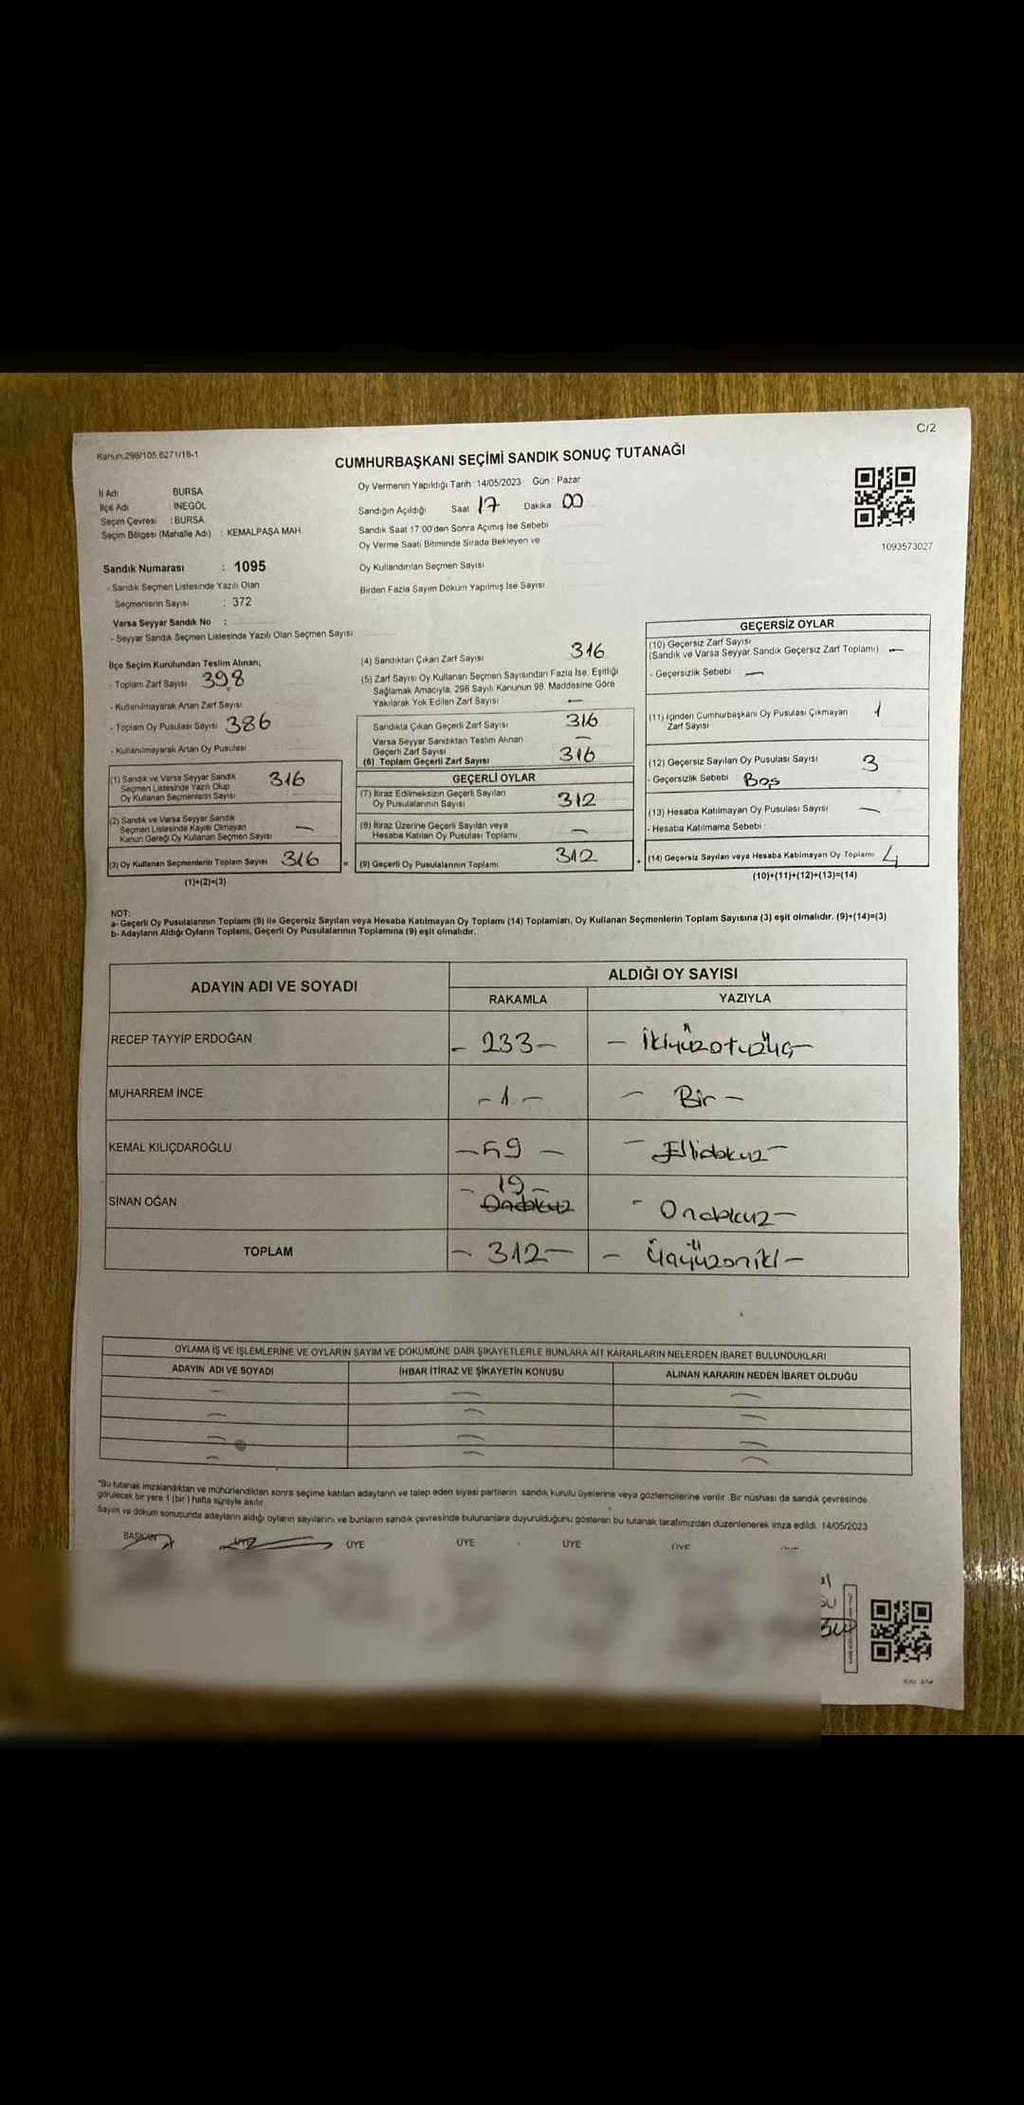 C/2
Kanun:298/105,6271/18-1
CUMHURBAŞKANI SEÇİMİ SANDIK SONUÇ TUTANAĞI
İl Adı BURSA
İlçe Adı İNEGÖL
Seçim Çevresi : BURSA
Seçim Bölgesi (Mahalle Adı) : KEMALPAŞA MAH
Oy Vermenin Yapıldığı Tarih : 14/05/2023 Gün : Pazar
Sandığın Açıldığı Saat 17 Dakika 00
Sandık Saat 17:00'den Sonra Açılmış İse Sebebi
Oy Verme Saati Bitiminde Sırada Bekleyen ve
Oy Kullandırılan Seçmen Sayısı
Birden Fazla Sayım Döküm Yapılmış İse Sayısı
1093573027
Sandık Numarası : 1095
- Sandık Seçmen Listesinde Yazılı Olan
Seçmenlerin Sayısı : 372
Varsa Seyyar Sandık No :
- Seyyar Sandık Seçmen Listesinde Yazılı Olan Seçmen Sayısı
İlçe Seçim Kurulundan Teslim Alınan;
- Toplam Zarf Sayısı 398
- Kullanılmayarak Artan Zarf Sayısı
- Toplam Oy Pusulası Sayısı 386
- Kullanılmayarak Artan Oy Pusulası
(1) Sandık ve Varsa Seyyar Sandık
Seçmen Listesinde Yazılı Olup
Oy Kullanan Seçmenlerin Sayısı 316
(2) Sandık ve Varsa Seyyar Sandık
Seçmen Listesinde Kayıtlı Olmayan
Kanun Gereği Oy Kullanan Seçmen Sayısı —
(3) Oy Kullanan Seçmenlerin Toplam Sayısı 316
(1)+(2)=(3)
(4) Sandıktan Çıkan Zarf Sayısı 316
(5) Zarf Sayısı Oy Kullanan Seçmen Sayısından Fazla İse, Eşitliği
Sağlamak Amacıyla, 298 Sayılı Kanunun 98. Maddesine Göre
Yakılarak Yok Edilen Zarf Sayısı —
Sandıkta Çıkan Geçerli Zarf Sayısı 316
Varsa Seyyar Sandıktan Teslim Alınan
Geçerli Zarf Sayısı —
(6) Toplam Geçerli Zarf Sayısı 316
GEÇERLİ OYLAR
(7) İtiraz Edilmeksizin Geçerli Sayılan
Oy Pusulalarının Sayısı 312
(8) İtiraz Üzerine Geçerli Sayılan veya
Hesaba Katılan Oy Pusulası Toplamı —
(9) Geçerli Oy Pusulalarının Toplamı 312
GEÇERSİZ OYLAR
(10) Geçersiz Zarf Sayısı
(Sandık ve Varsa Seyyar Sandık Geçersiz Zarf Toplamı) —
- Geçersizlik Sebebi —
(11) İçinden Cumhurbaşkanı Oy Pusulası Çıkmayan
Zarf Sayısı 1
(12) Geçersiz Sayılan Oy Pusulası Sayısı 3
- Geçersizlik Sebebi Boş
(13) Hesaba Katılmayan Oy Pusulası Sayısı —
- Hesaba Katılmama Sebebi :
(14) Geçersiz Sayılan veya Hesaba Katılmayan Oy Toplamı 4
(10)+(11)+(12)+(13)=(14)
NOT:
a- Geçerli Oy Pusulalarının Toplamı (9) ile Geçersiz Sayılan veya Hesaba Katılmayan Oy Toplamı (14) Toplamları, Oy Kullanan Seçmenlerin Toplam Sayısına (3) eşit olmalıdır. (9)+(14)=(3)
b- Adayların Aldığı Oyların Toplamı, Geçerli Oy Pusulalarının Toplamına (9) eşit olmalıdır.
ADAYIN ADI VE SOYADI ALDIĞI OY SAYISI
RAKAMLA YAZIYLA
RECEP TAYYİP ERDOĞAN - 233 - - İkiyüzotuzüç -
MUHARREM İNCE - 1 - - Bir -
KEMAL KILIÇDAROĞLU - 59 - - Ellidokuz -
SİNAN OĞAN - 19 - Ondokuz - Ondokuz -
TOPLAM - 312 - - Üçyüzoniki -
OYLAMA İŞ VE İŞLEMLERİNE VE OYLARIN SAYIM VE DÖKÜMÜNE DAİR ŞİKAYETLERLE BUNLARA AİT KARARLARIN NELERDEN İBARET BULUNDUKLARI
ADAYIN ADI VE SOYADI İHBAR İTİRAZ VE ŞİKAYETİN KONUSU ALINAN KARARIN NEDEN İBARET OLDUĞU
*Bu tutanak imzalandıktan ve mühürlendikten sonra seçime katılan adayların ve talep eden siyasi partilerin sandık kurulu üyelerine veya gözlemcilerine verilir. Bir nüshası da sandık çevresinde
görülecek bir yere 1 (bir) hafta süreyle asılır.
Sayım ve döküm sonucunda adayların aldığı oyların sayılarını ve bunların sandık çevresinde bulunanlara duyurulduğunu gösteren bu tutanak tarafımızdan düzenlenerek imza edildi. 14/05/2023
BAŞKAN ÜYE ÜYE ÜYE ÜYE